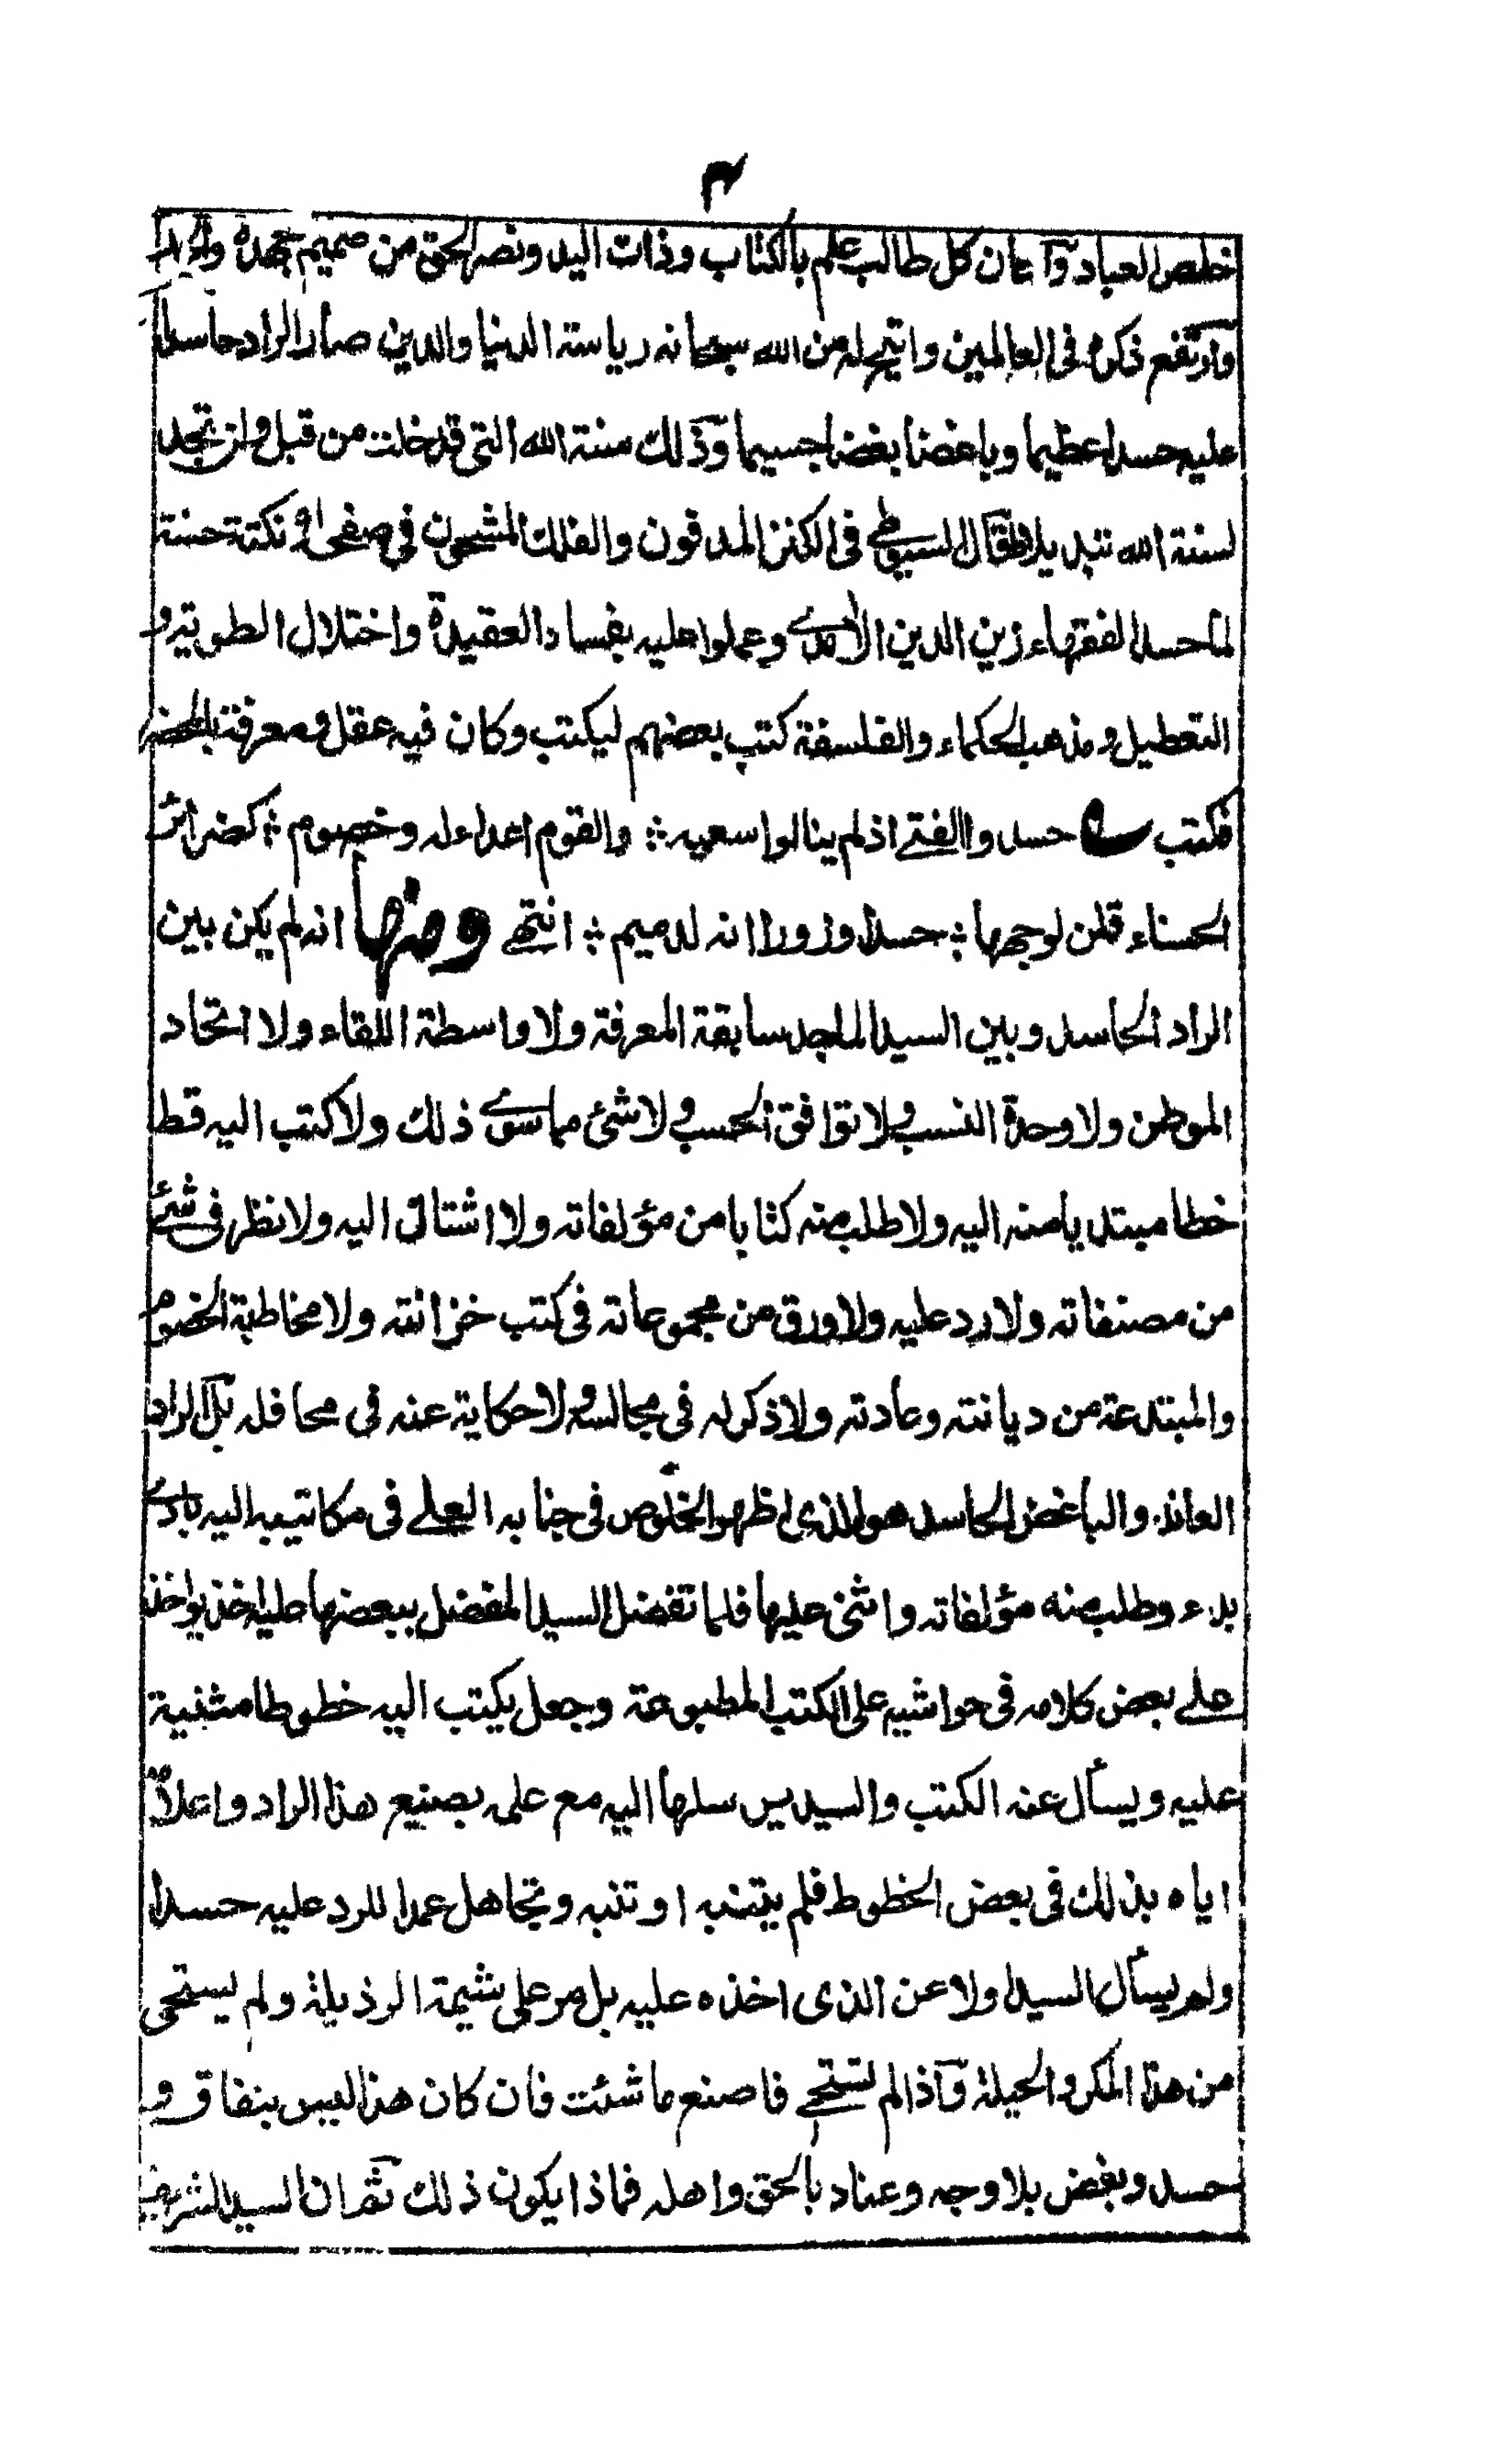 ۴
خلص العباد وآعان كل طالب علم بالكتاب وذات اليد ونصر الحق من صميم جهده
وارتفع ذكره فى العالمين واتيح له من الله سبحانه رياسة الدنيا والدين صار الراد حاسدا
عليه حسدا عظيما وباغضا بغضا جسيما وذلك سنة الله التى قد خلت من قبل ولن تجد
لسنة الله تبديلا قال السيوطى فى الكنز المدفون والفلك المشحون فى صفحة نكتة حسنة
لما حسد الفقهاء زين الدين الآمدے وعملوا عليه بفساد العقيدة واختلال الطوية و
التعطيل ومذهب الحكماء والفلسفة كتب بعضهم ليكتب وكان فيه عقل ومعرفة
فكتب حسدوا الفتے اذ لم ينالوا سعيه ؞ والقوم اعداء له وخصوم ؞ كضرائر
الحسناء قلن لوجهها ؞ حسدا وزورا انه لدميم ؞ انتهے ومنها انه لم يكن بين
الراد الحاسد وبين السيد الماجد سابقة المعرفة ولا واسطة اللقاء ولا اتحاد
الموطن ولا وحدة النسب ولا توافق الحسب ولا شئ مما سوے ذلك ولا كتب اليه قط
خطا مبتديا منه اليه ولا طلب منه كتابا من مؤلفاته ولا اشتاق اليه ولا نظر فى شئے
من مصنفاته ولا رد عليه ولا ورق من مجموعاته فى كتب خزانته ولا مخاطبة الخصوم
والمبتدعة من ديانته وعادته ولا ذكر له فى مجالسه ولا حكاية عنه فى محافله بل الراد
العاند والباغض الحاسد هو الذى اظهر الخلوص فى جنابه العلے فى مكاتيبه اليه بادى
بدء وطلب منه مؤلفاته واثنى عليها فلما تفضل السيد المفضل ببعضها عليه اخذ يواخذ
علے بعض كلامه فى حواشيه على الكتب المطبوعة وجعل يكتب اليه خطوطا مثنية
عليه ويسأل عنه الكتب والسيد يرسلها اليه مع علمه بصنيع هذا الراد واعلامه
اياه بذلك فى بعض الخطوط فلم يتنبه او تنبه وتجاهل عمدا للرد عليه حسدا
ولم يسأل السيد اولا عن الذى اخذه عليه بل مر على شيمة الرذيلة ولم يستحى
من هذا المكر والحيلة وآذا لم تستحے فاصنع ما شئت فان كان هذا ليس بنفاق و
حسد وبغض بلا وجه وعناد بالحق واهله فماذا يكون ذلك ثم ان السيد الشريف